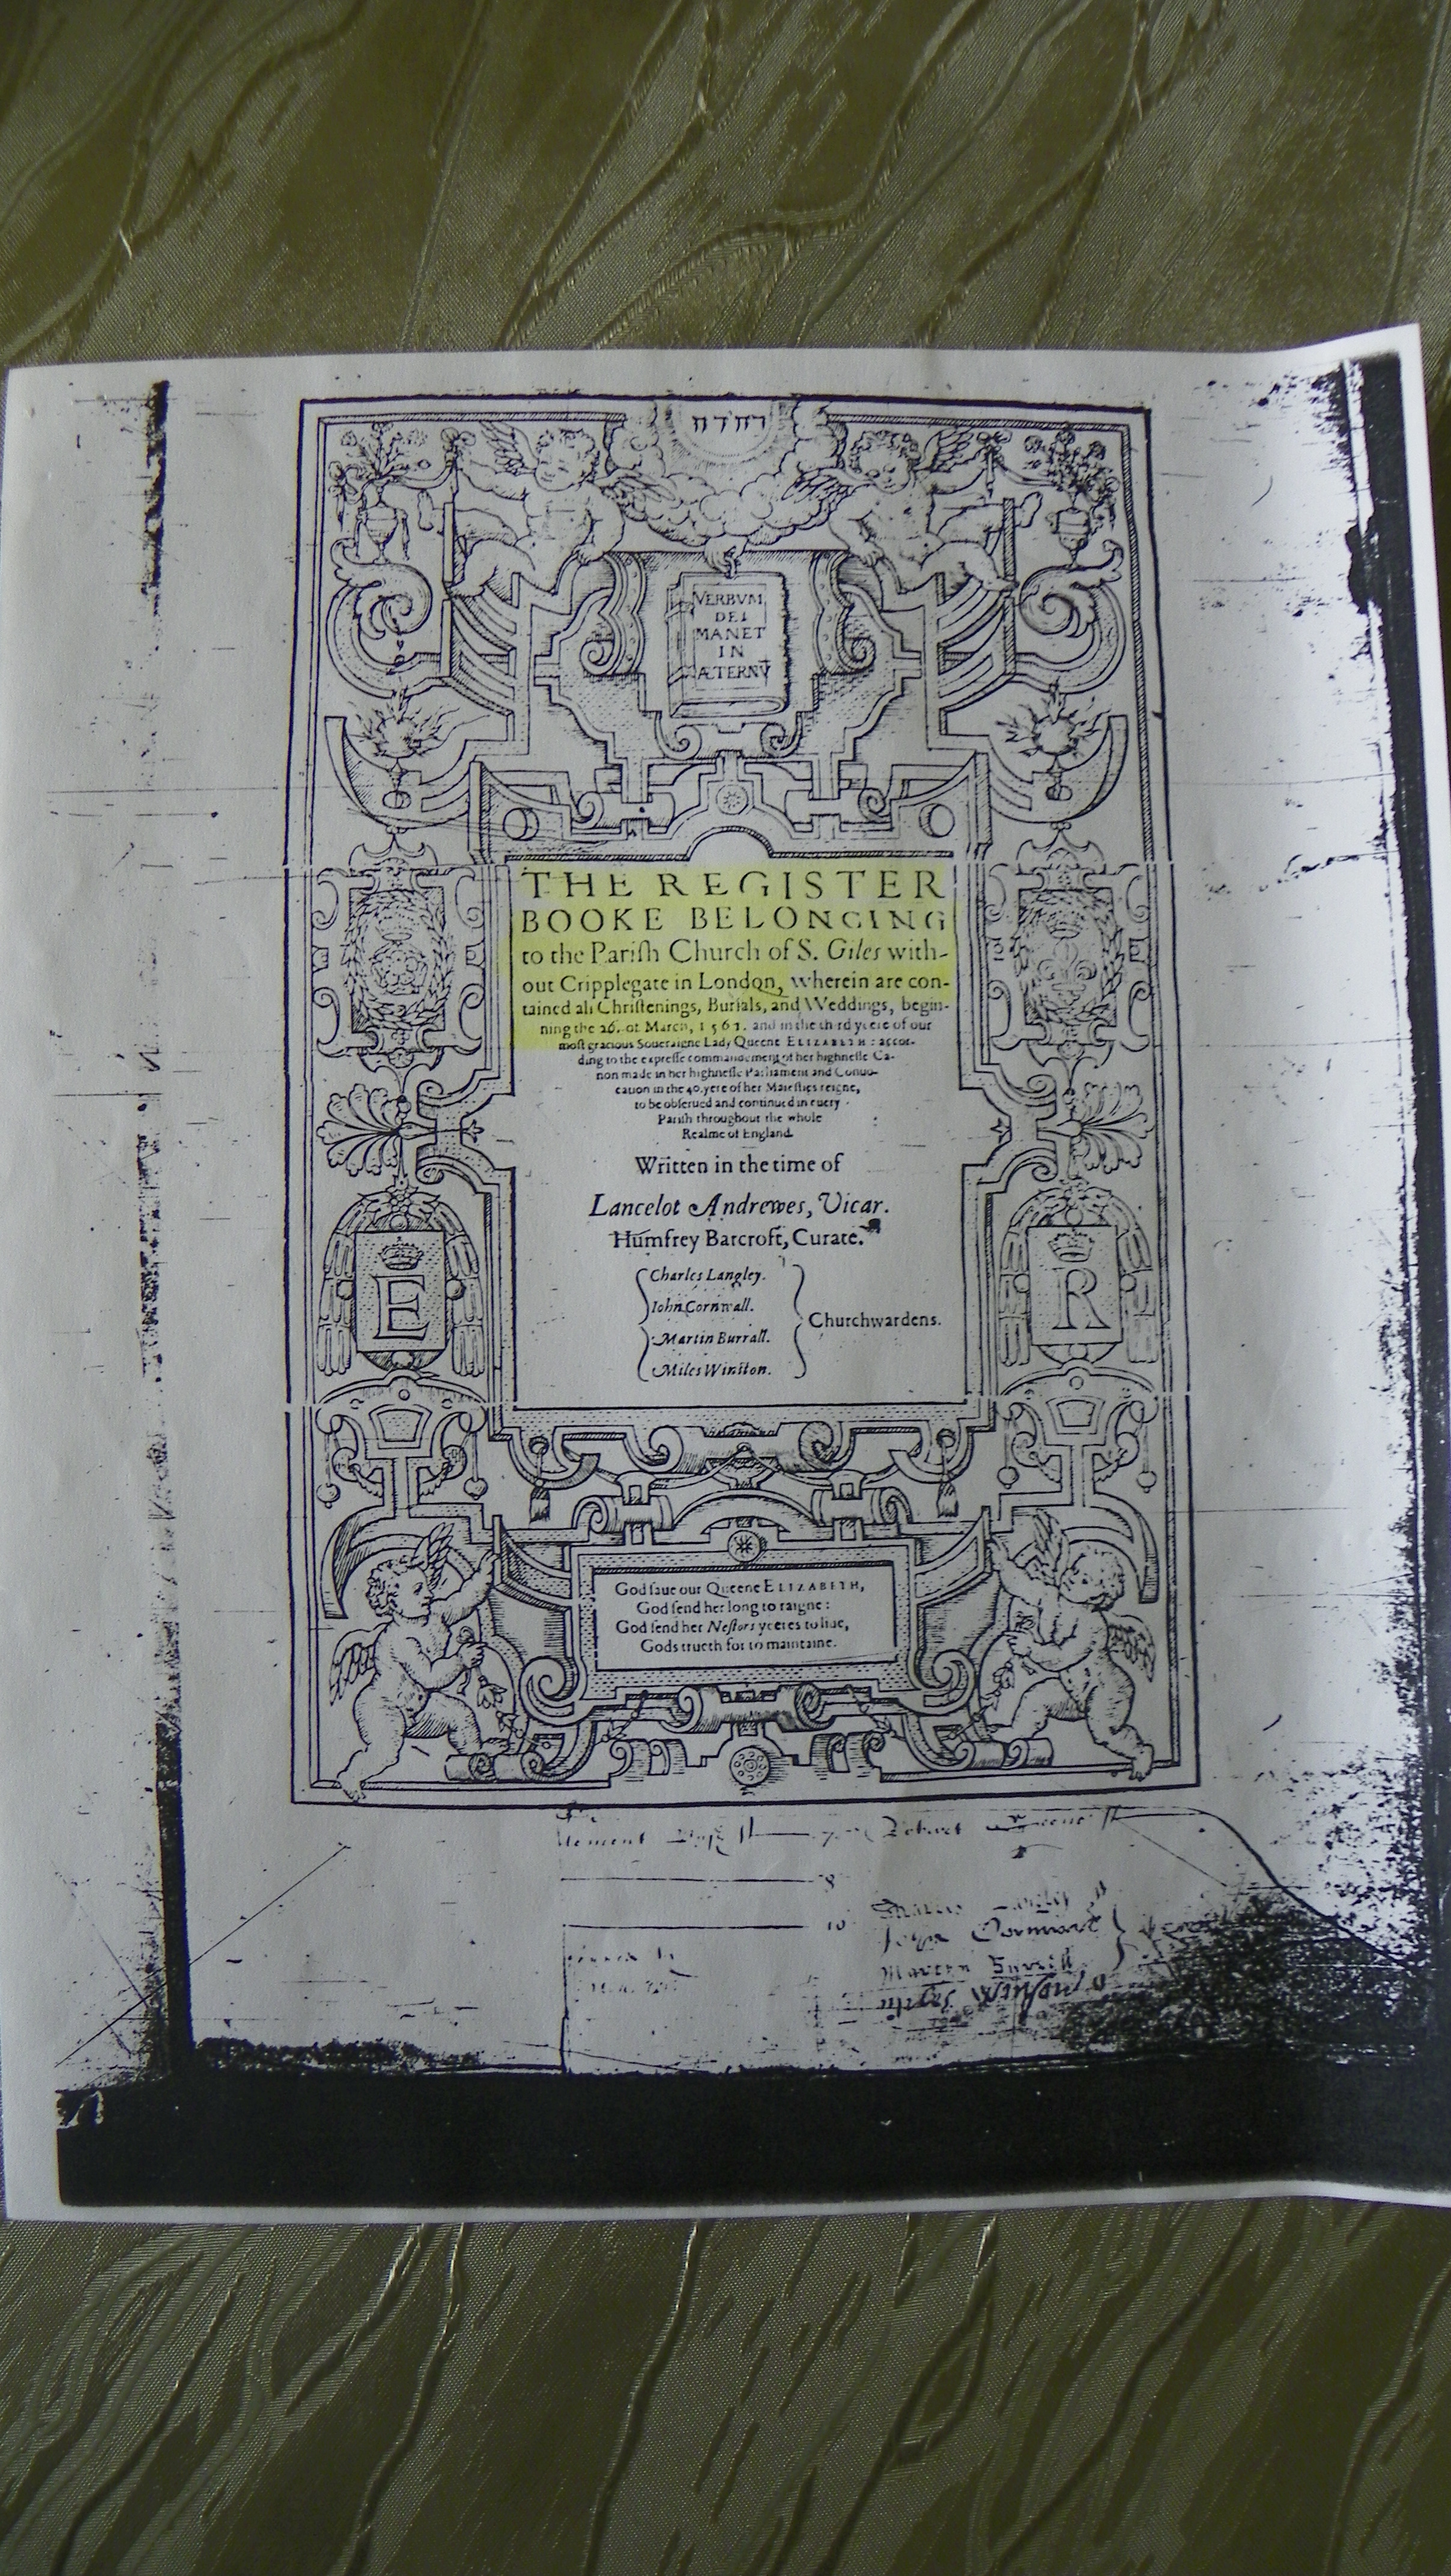 יהוה
VERBVM
DEI
MANET
IN
ÆTERNV̄
THE REGISTER
BOOKE BELONGING
to the Pariſh Church of S. Giles with-
out Cripplegate in London, wherein are con-
tained all Chriſtenings, Burials, and Weddings, begin-
ning the 26. of March, 1561. and in the third yeere of our
moſt gracious Soueraigne Lady Queene ELIZABETH: accor-
ding to the expreſſe commandement of her highneſſe Ca-
non made in her highneſſe Parliament and Conuo-
cation in the 40. yere of her Maieſties reigne,
to be obſerued and continued in euery
Pariſh throughout the whole
Realme of England.
Written in the time of
Lancelot Andrewes, Vicar.
Humfrey Barcroft, Curate.
Charles Langley.
Iohn Cornwall.
Martin Burrall.
Miles Winſton.
Churchwardens.
E
R
E
R
God ſaue our Queene ELIZABETH,
God ſend her long to raigne:
God ſend her Neſtors yeeres to liue,
Gods trueth for to maintaine.
Robert Greene
8
10